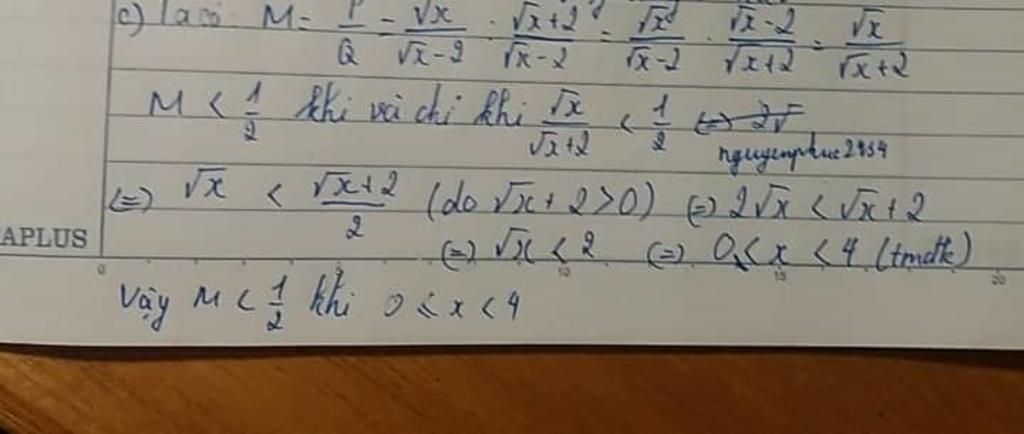 c) Ta có M = P/Q = √x/(√x-2) : (√x+2)/(√x-2) = √x/(√x-2) . (√x-2)/(√x+2) = √x/(√x+2)
M < 1/2 khi và chỉ khi √x/(√x+2) < 1/2 (=) 2√
nguyenphuc2934
(=) √x < (√x+2)/2 (do √x + 2 > 0) (=) 2√x < √x + 2
APLUS (=) √x < 2 (=) 0 ≤ x < 4 (tmđk)
0 10 15 20
Vậy M < 1/2 khi 0 ≤ x < 4